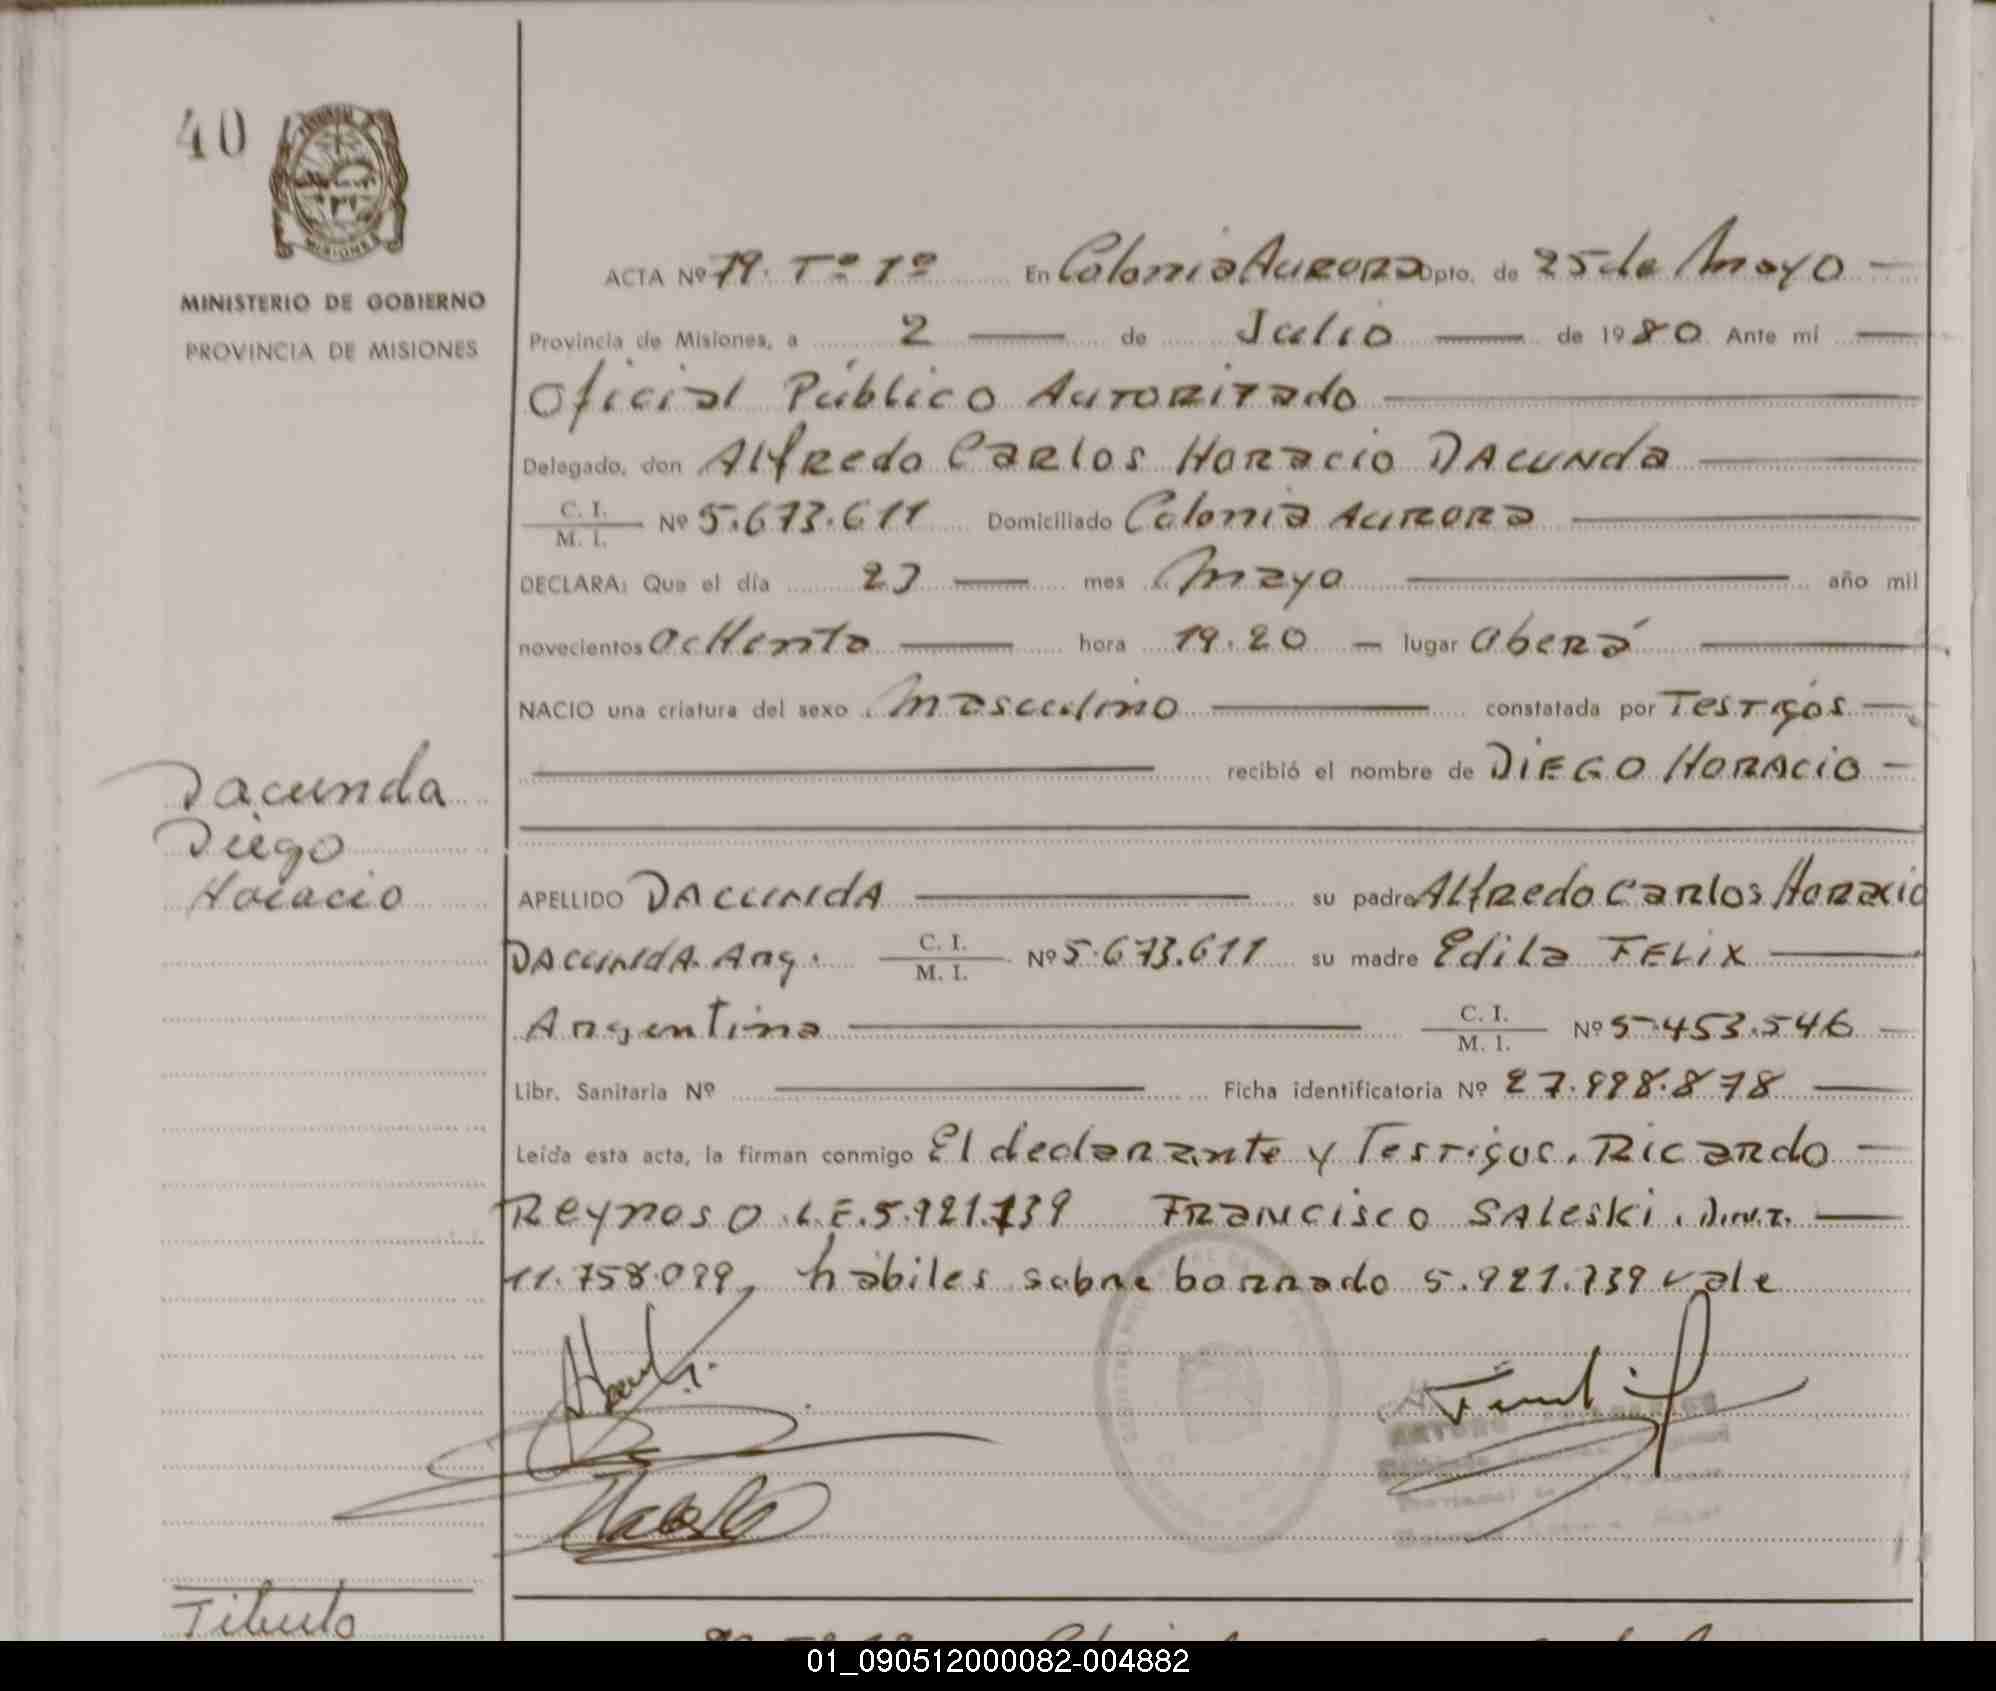 40
MISIONES
MINISTERIO DE GOBIERNO
PROVINCIA DE MISIONES
ACTA Nº 79. Tº 1º En Colonia Aurora Dpto. de 25 de Mayo
Provincia de Misiones, a 2 de Julio de 1980. Ante mí
Oficial Público Autorizado
Delegado, don Alfredo Carlos Horacio DACUNda
C. I.
M. I. Nº 5.673.611 Domiciliado Colonia Aurora
DECLARA: Que el día 23 mes Mayo año mil
novecientos ocHenta hora 19.20 lugar Oberá
NACIO una criatura del sexo Masculino constatada por Testigos
recibió el nombre de DIEGO HORACIO
Dacunda
Diego
Horacio
APELLIDO DACUNdA su padre Alfredo Carlos Horacio
DACUNdA. Arg. C. I.
M. I. Nº 5.673.611 su madre Edila FELIX
Argentina C. I.
M. I. Nº 5.453.546
Libr. Sanitaria Nº Ficha identificatoria Nº 27.998.878
Leída esta acta, la firman conmigo El declarante y Testigos. Ricardo
Reynoso L.E. 5.921.739 Francisco Saleski. D.N.I.
11.758.099, hábiles sobre borrado 5.921.739 vale
01_090512000082-004882